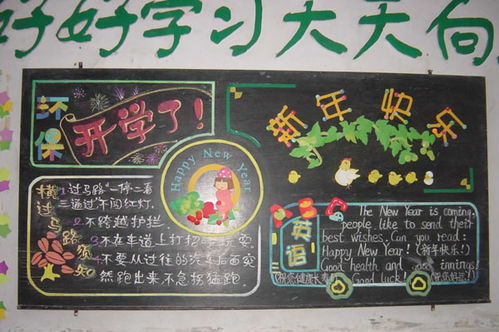 好好学习天天向
环保
开学了!
新年若的
Happy New Year
横过马路须知
1.过马路"一停二看
三通过"不闯红灯.
2.不跨越护拦.
3.不在车道上打招呼玩耍
4.不要从过往的汽车后面突
然跑出来,不急拐猛跑.
英语
The New Year is coming.
people like to send their
best wishes. Can you read:
Happy New Year! (新年快乐!)
Good health and
Good luck!